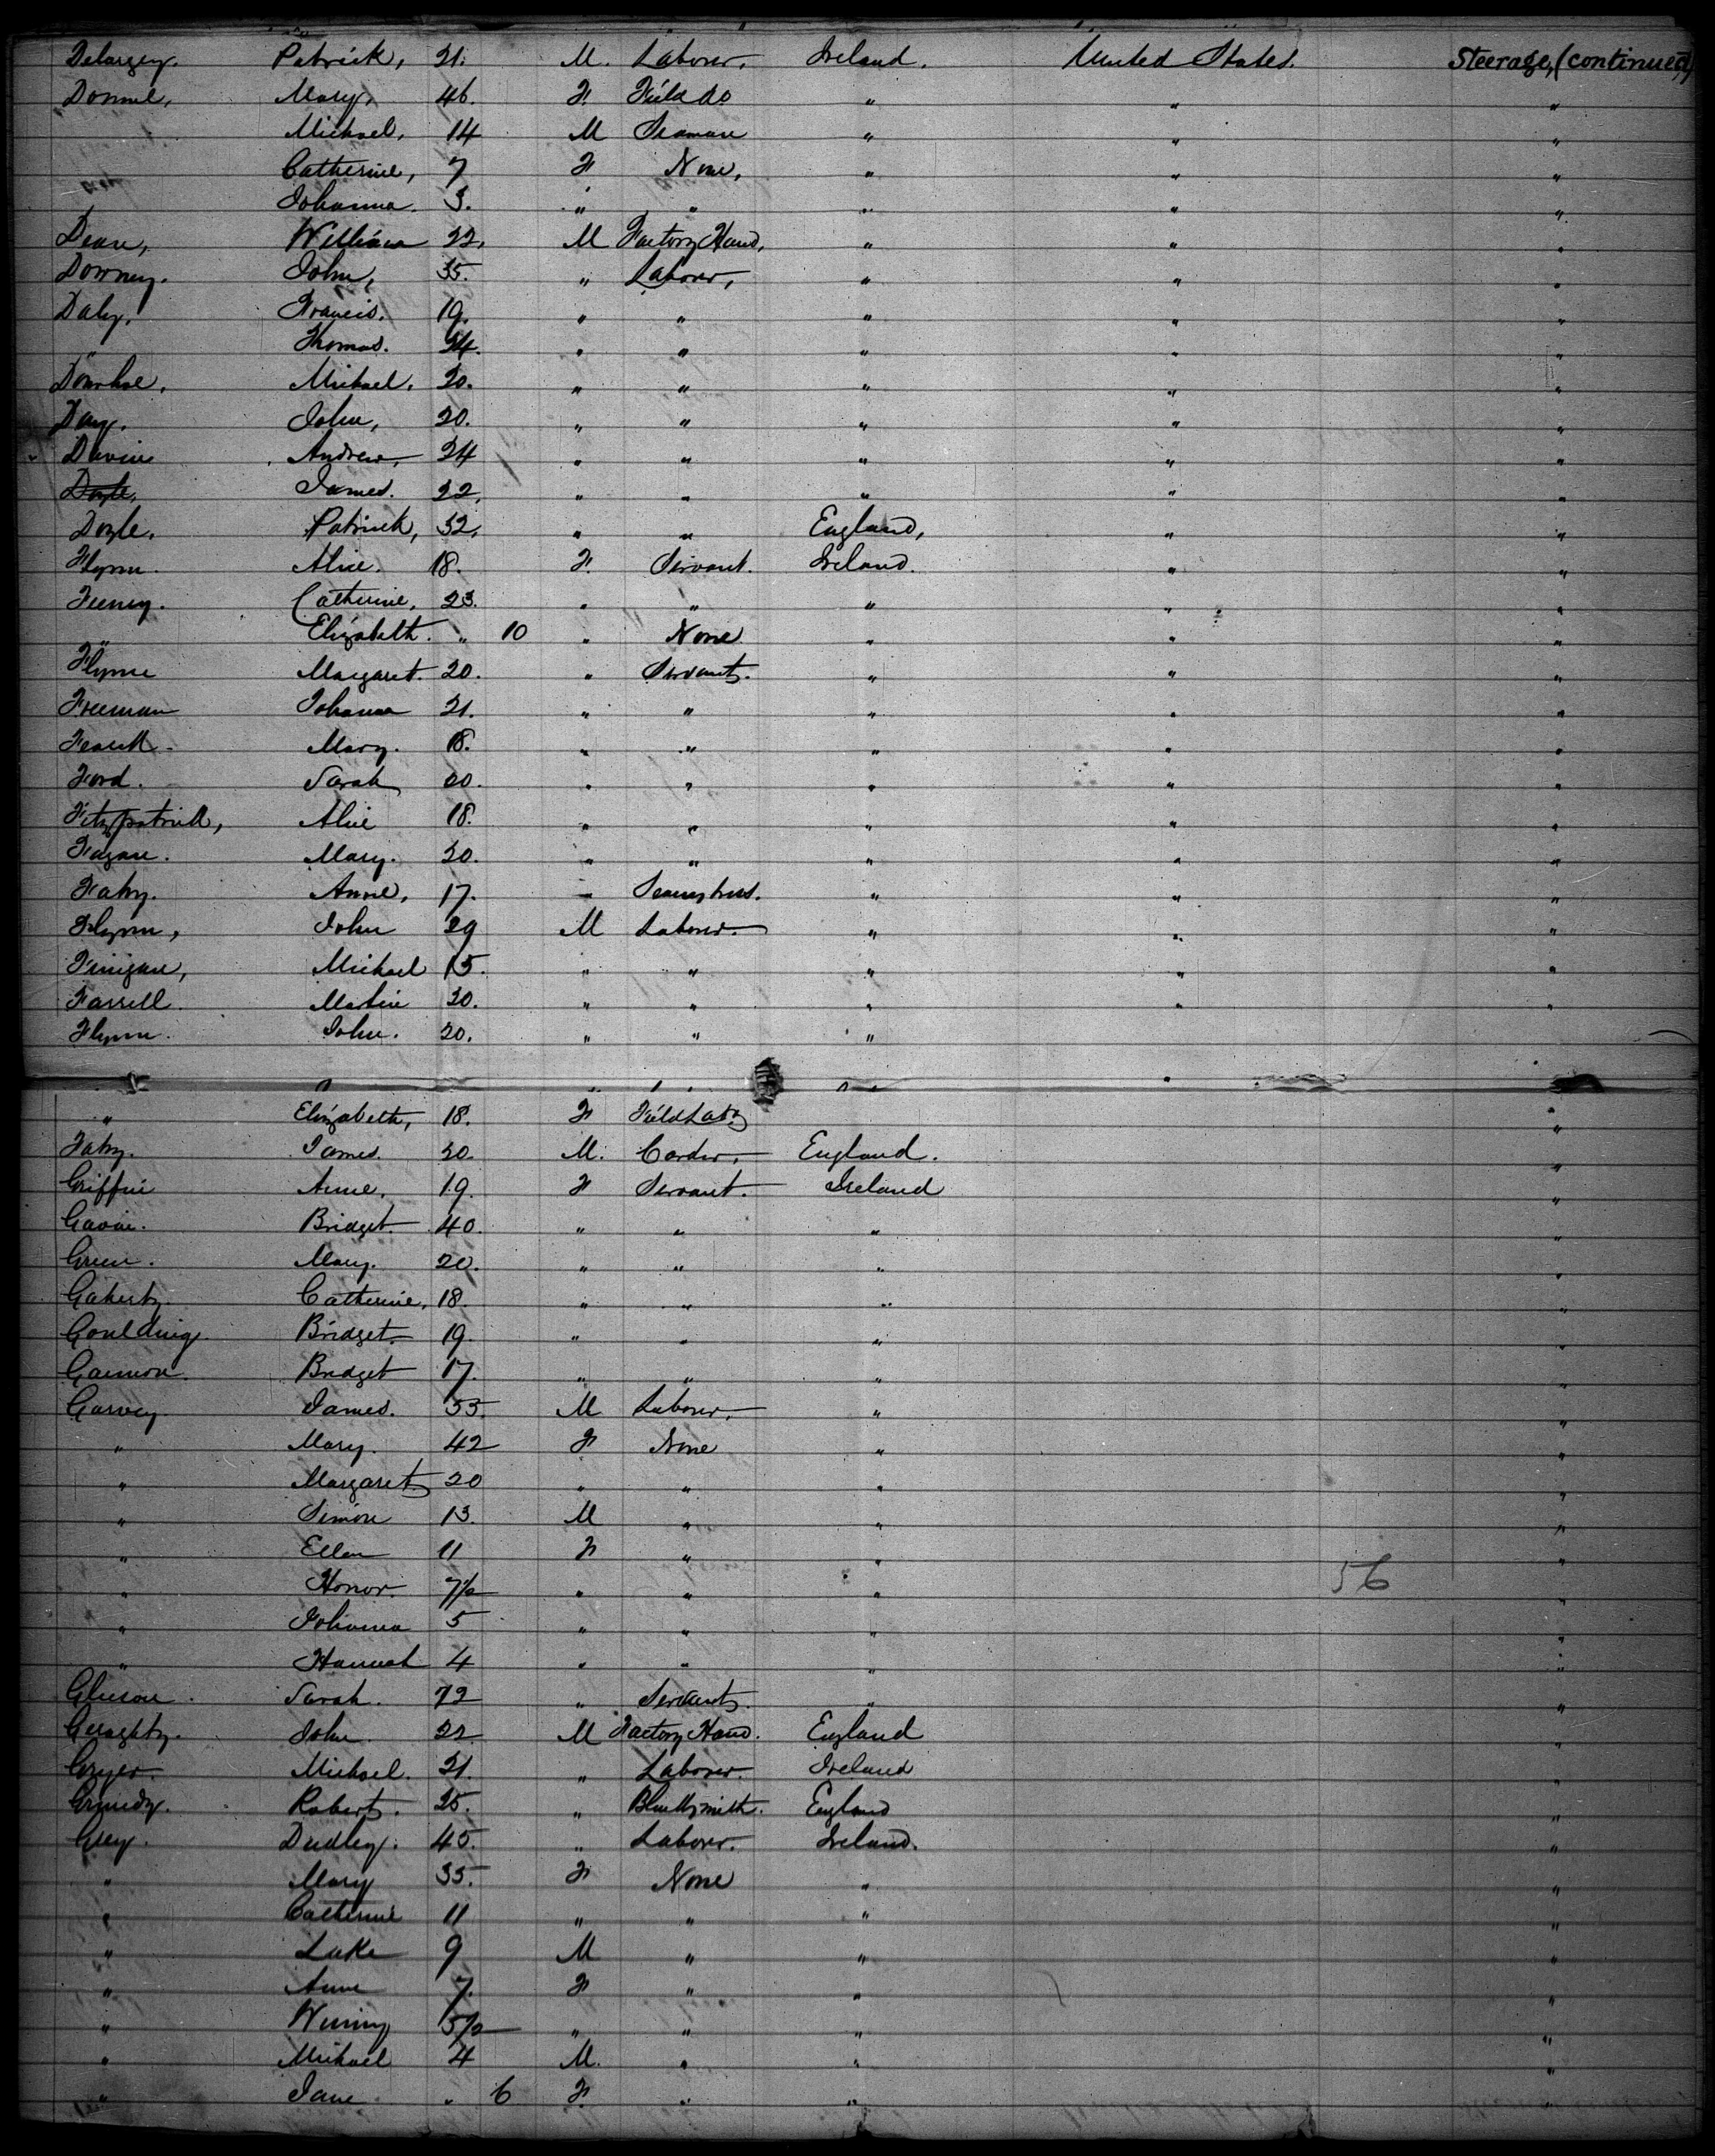 Delargey. Patrick, 21. M. Laborer, Ireland. United States. Steerage, (continued)
Mary, 46. F. Field do " " "
Michael, 14 M Seaman " " "
Catherine, 7 F None, " " "
Johanna. 3. " " " " "
Dean, William 22, M Factory Hand, " " "
Downey. John, 35. " Laborer, " " "
Daly. Francis. 19. " " " " "
" Thomas. 24. " " " " "
Donohoe, Michael. 20. " " " " "
Day. John, 20. " " " " "
Devine Andrew, 24 " " " " "
Doyle, James. 22, " " " " "
Doyle, Patrick, 32, " " England, " "
Flynn. Alice. 18. F. Servant. Ireland. " "
Feeney. Catherine, 23. " " " " "
" Elizabeth. " 10 " None " " "
Flynn Margaret. 20. " Servant. " " "
Freeman Johanna 21. " " " " "
Mary. 18. " " " " "
Ford. Sarah 20. " " " " "
Fitzpatrick, Alice 18. " " " " "
Fagan. Mary. 20. " " " " "
Fahy. Anne, 17. " Seamstress. " " "
Flynn, John 29 M Laborer. " " "
Finigan, Michael 15. " " " " "
Farrell. Martin 30. " " " " "
Flynn. John. 20. " " "
" Elizabeth, 18. F Field Labr "
Fahy. James. 20. M. Carder, England. "
Griffin Anne, 19. F Servant. Ireland "
Gavin. Bridget 40. " " " "
Green. Mary. 20. " " " "
Gaherty. Catherine, 18. " " " "
Goulding. Bridget 19. " " " "
Gannon. Bridget 17. " " " "
Garvey. James. 55. M Laborer, " "
" Mary. 42 F None " "
" Margaret 20 " " " "
" Simon 13. M " " "
" Ellen 11 F " " "
" Honor. 7½ " " " 56 "
" Johanna 5 " " " "
" Hannah 4 " " " "
Gleeson. Sarah. 72 " Servant. " "
Geraghty. John. 22 M Factory Hand. England "
Michael. 21. " Laborer. Ireland "
Robert. 25. " Blacksmith. England "
Grey. Dudley. 45. " Laborer. Ireland. "
" Mary 35. F None " "
" Catherine 11 " " " "
" Luke 9 M " " "
" Anne 7. F " " "
" Winny 5½ " " " "
" Michael 4 M. " " "
" Jane " 6 F " " "